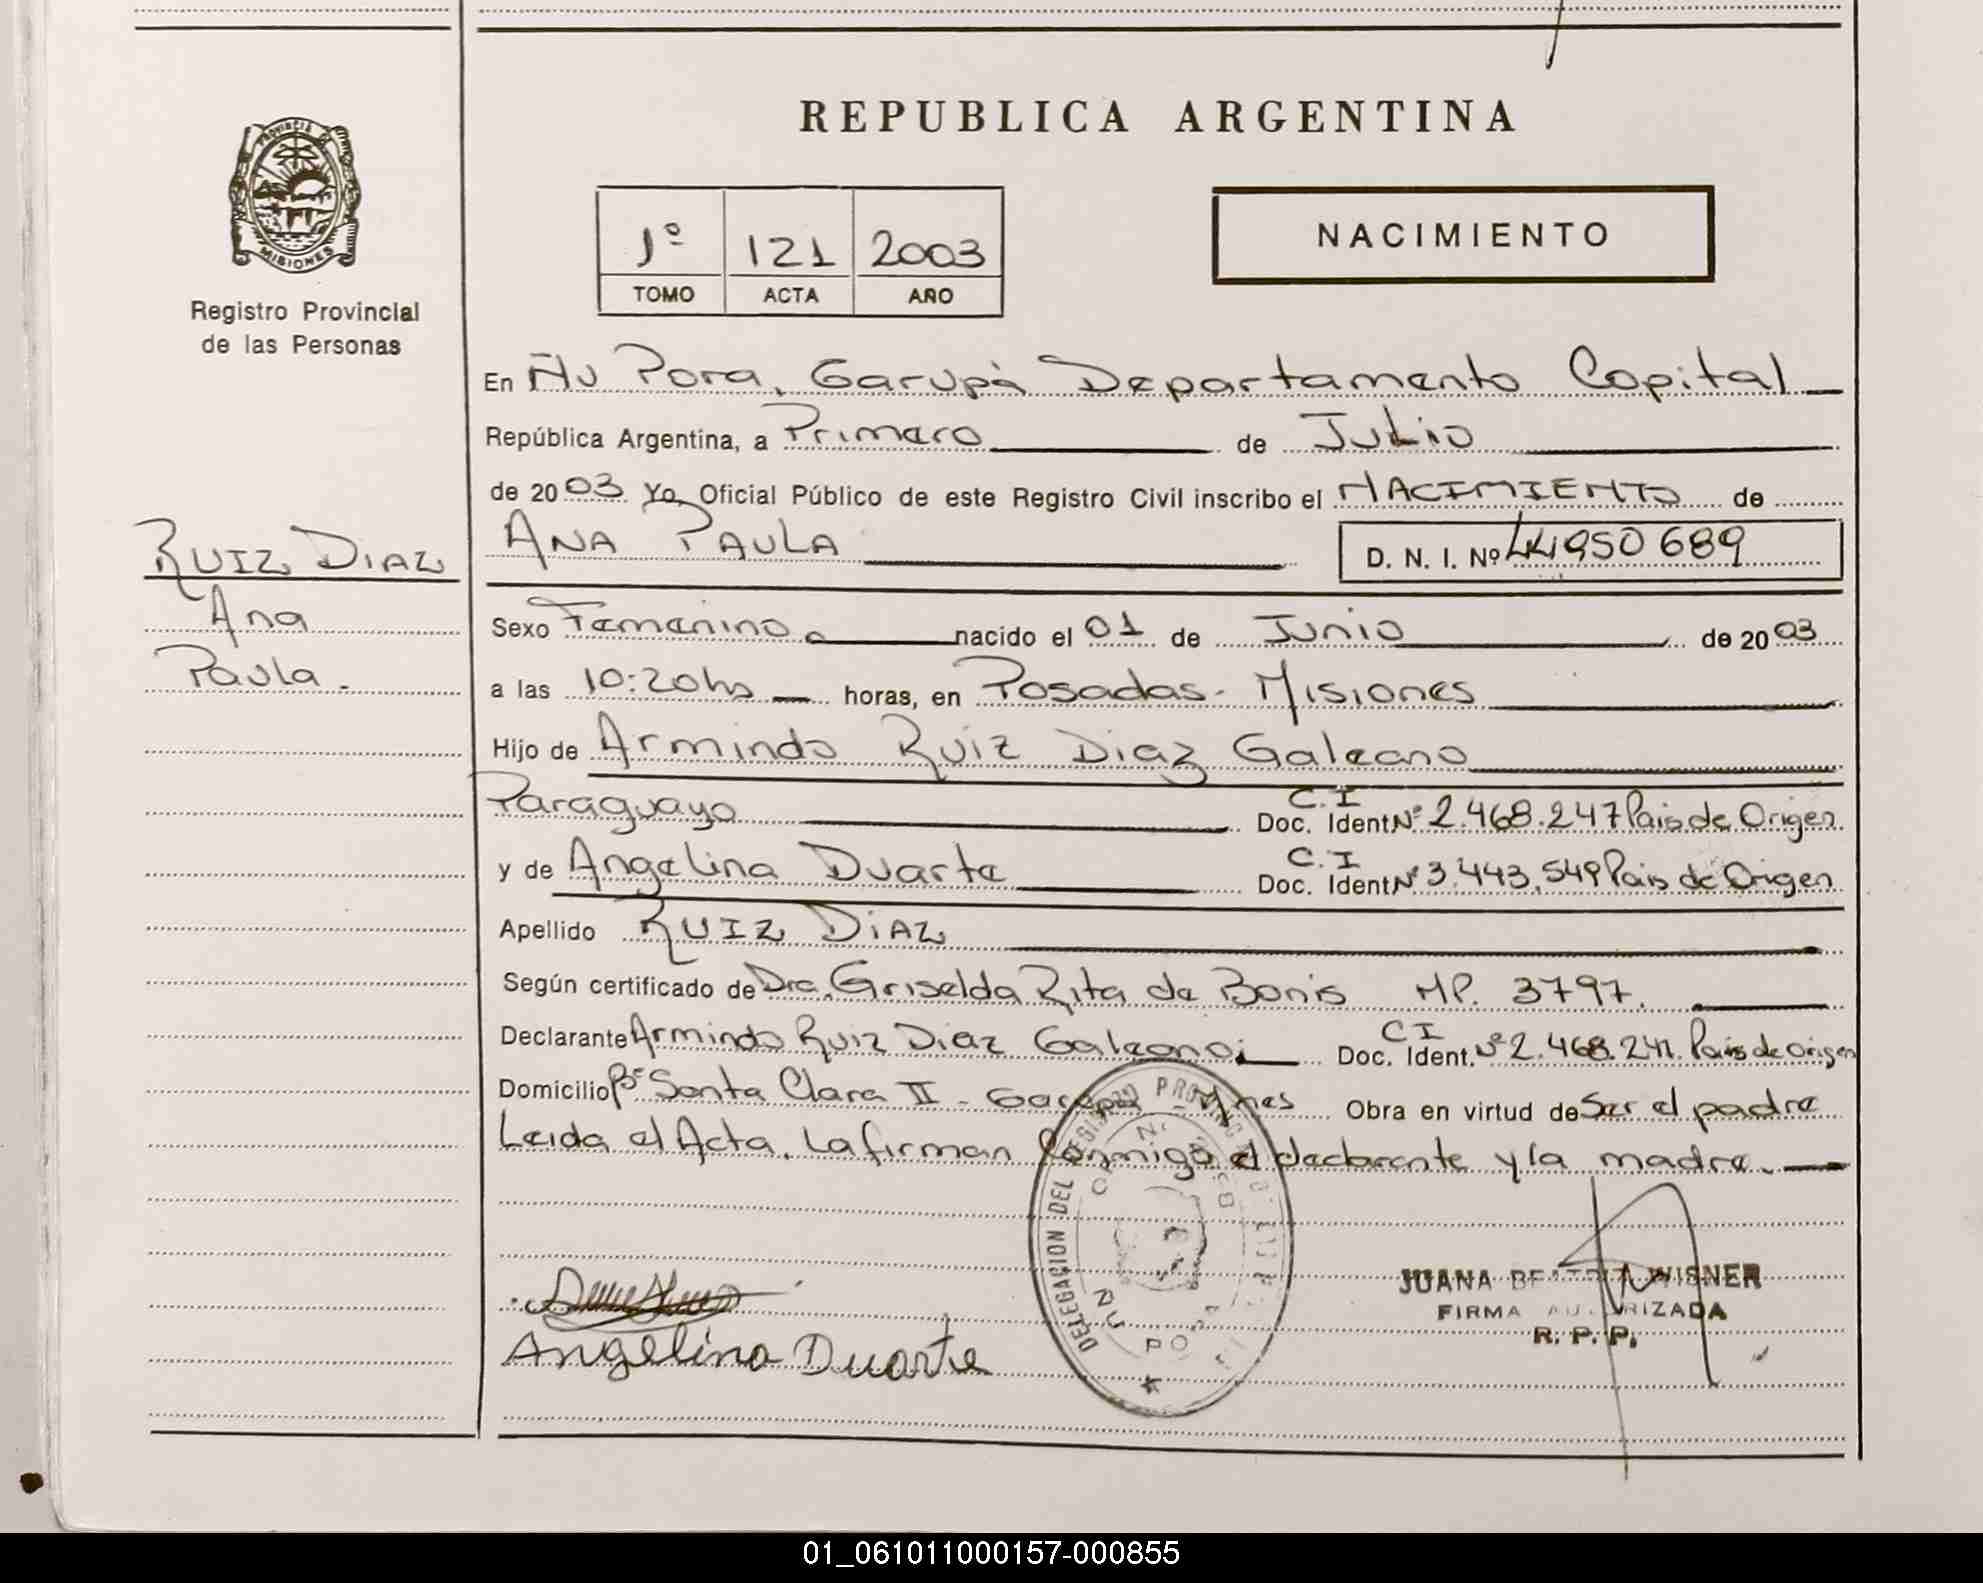 REPUBLICA ARGENTINA
PROVINCIA DE MISIONES
Registro Provincial
de las Personas
1º 121 2003
TOMO ACTA AÑO
NACIMIENTO
En Ñu Pora, Garupá Departamento Capital
República Argentina, a Primero de Julio
de 2003 Yo Oficial Público de este Registro Civil inscribo el NACIMIENTO de
RUIZ DIAZ
Ana
Paula.
ANA PAULA D. N. I. Nº 44950689
Sexo Femenino nacido el 01 de Junio de 2003
a las 10:20hs horas, en Posadas - Misiones
Hijo de Armindo Ruiz Diaz Galeano
Paraguayo C.I Doc. Ident Nº 2.468.247 Pais de Origen
y de Angelina Duarte C.I Doc. Ident Nº 3.443.549 Pais de Origen
Apellido RUIZ DIAZ
Según certificado de Dra. Griselda Rita de Bonis MP. 3797.
Declarante Armindo Ruiz Diaz Galeano CI Doc. Ident. Nº 2.468.247. Pais de origen
Domicilio Bº Santa Clara II - Garupá - Mnes Obra en virtud de Ser el padre
Leida el Acta, la firman Conmigo el declarante y la madre.
DELEGACION DEL REGISTRO
ÑU PORA
JUANA BEATRIZ WISNER
FIRMA AUTORIZADA
R. P. P.
Angelina Duarte
01_061011000157-000855